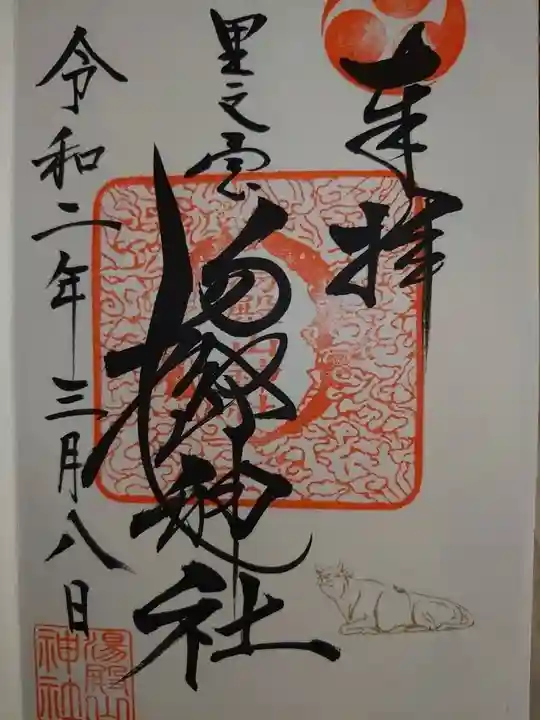 奉拝
里之宮
湯殿山神社
令和二年三月八日
湯殿山
神社